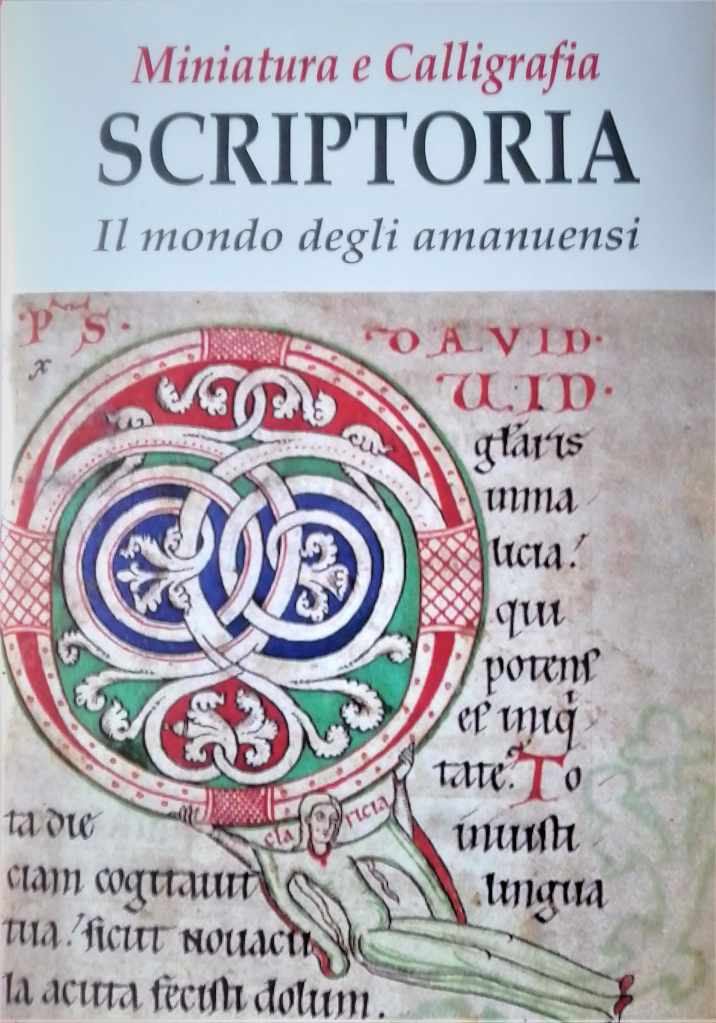 Miniatura e Calligrafia
SCRIPTORIA
Il mondo degli amanuensi
PS.
x
DAVID.
UID.
gl̄aris
inma
licia?
qui
potenſ
eſ iniq̇
tate? To
cla ricia
ta die
iniuſti
ciam cogitauit
lingua
tua? ſicut nouacu
la acuta feciſti dolum.